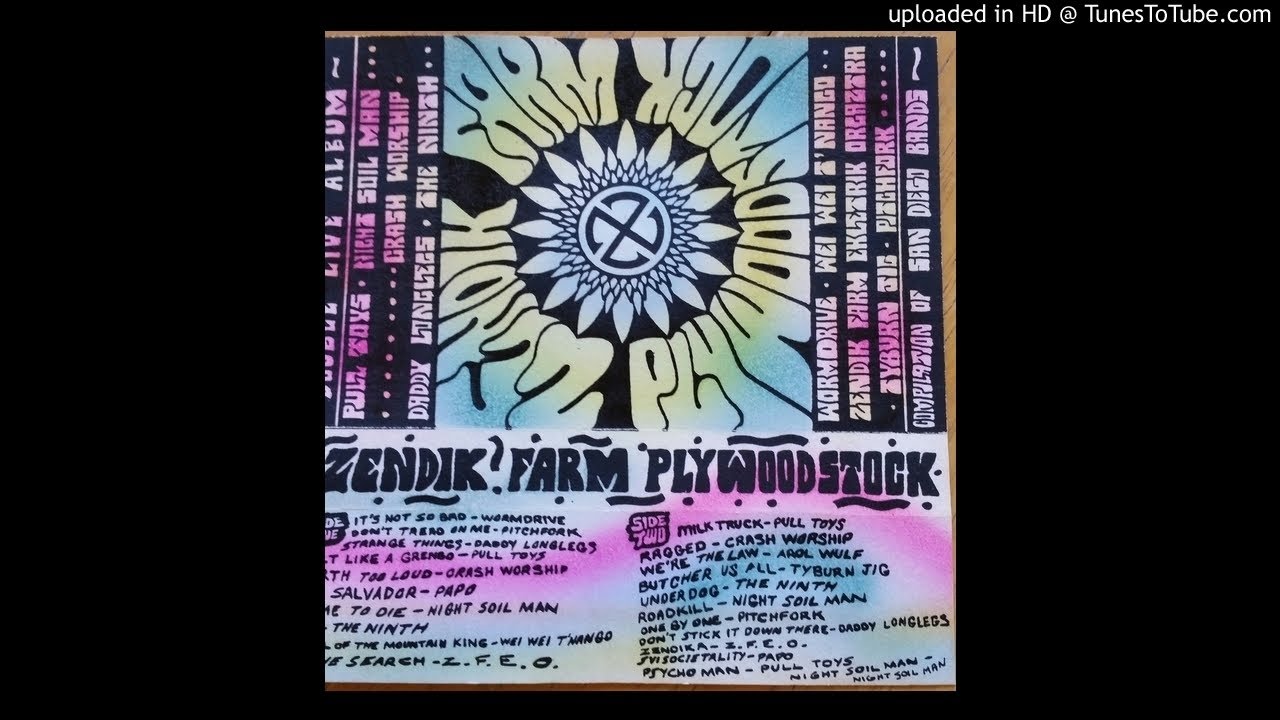 uploaded in HD @ TunesToTube.com
DOUBLE LIVE ALBUM ~
PULL TOYS · NIGHT SOIL MAN ....
....... CRASH WORSHIP ·
DADDY LONGLEGS · THE NINTH ..
ZENDIK FARM
PLYWOODSTOCK
WORMDRIVE · WEI WEI T'NANGO ..
ZENDIK FARM EKLETRIK ORGAZTRA
· TYBURN JIG · PITCHFORK .....
COMPILATION OF SAN DIEGO BANDS ~
ZENDIK FARM PLYWOODSTOCK
IT'S NOT SO BAD - WORMDRIVE
DON'T TREAD ON ME - PITCHFORK
STRANGE THINGS - DADDY LONGLEGS
T LIKE A GRENGO - PULL TOYS
RTH TOO LOUD - CRASH WORSHIP
SALVADOR - PAPO
ME TO DIE - NIGHT SOIL MAN
THE NINTH
OF THE MOUNTAIN KING - WEI WEI T'NANGO
HE SEARCH - Z.F.E.O.
SIDE TWO
MILK TRUCK - PULL TOYS
RAGGED - CRASH WORSHIP
WE'RE THE LAW - AROL WULF
BUTCHER US ALL - TYBURN JIG
UNDERDOG - THE NINTH
ROADKILL - NIGHT SOIL MAN
ONE BY ONE - PITCHFORK
DON'T STICK IT DOWN THERE - DADDY LONGLEGS
ZENDIKA - Z.F.E.O.
- PAPO
PSYCHO MAN - PULL TOYS
NIGHT SOIL MAN -
NIGHT SOIL MAN